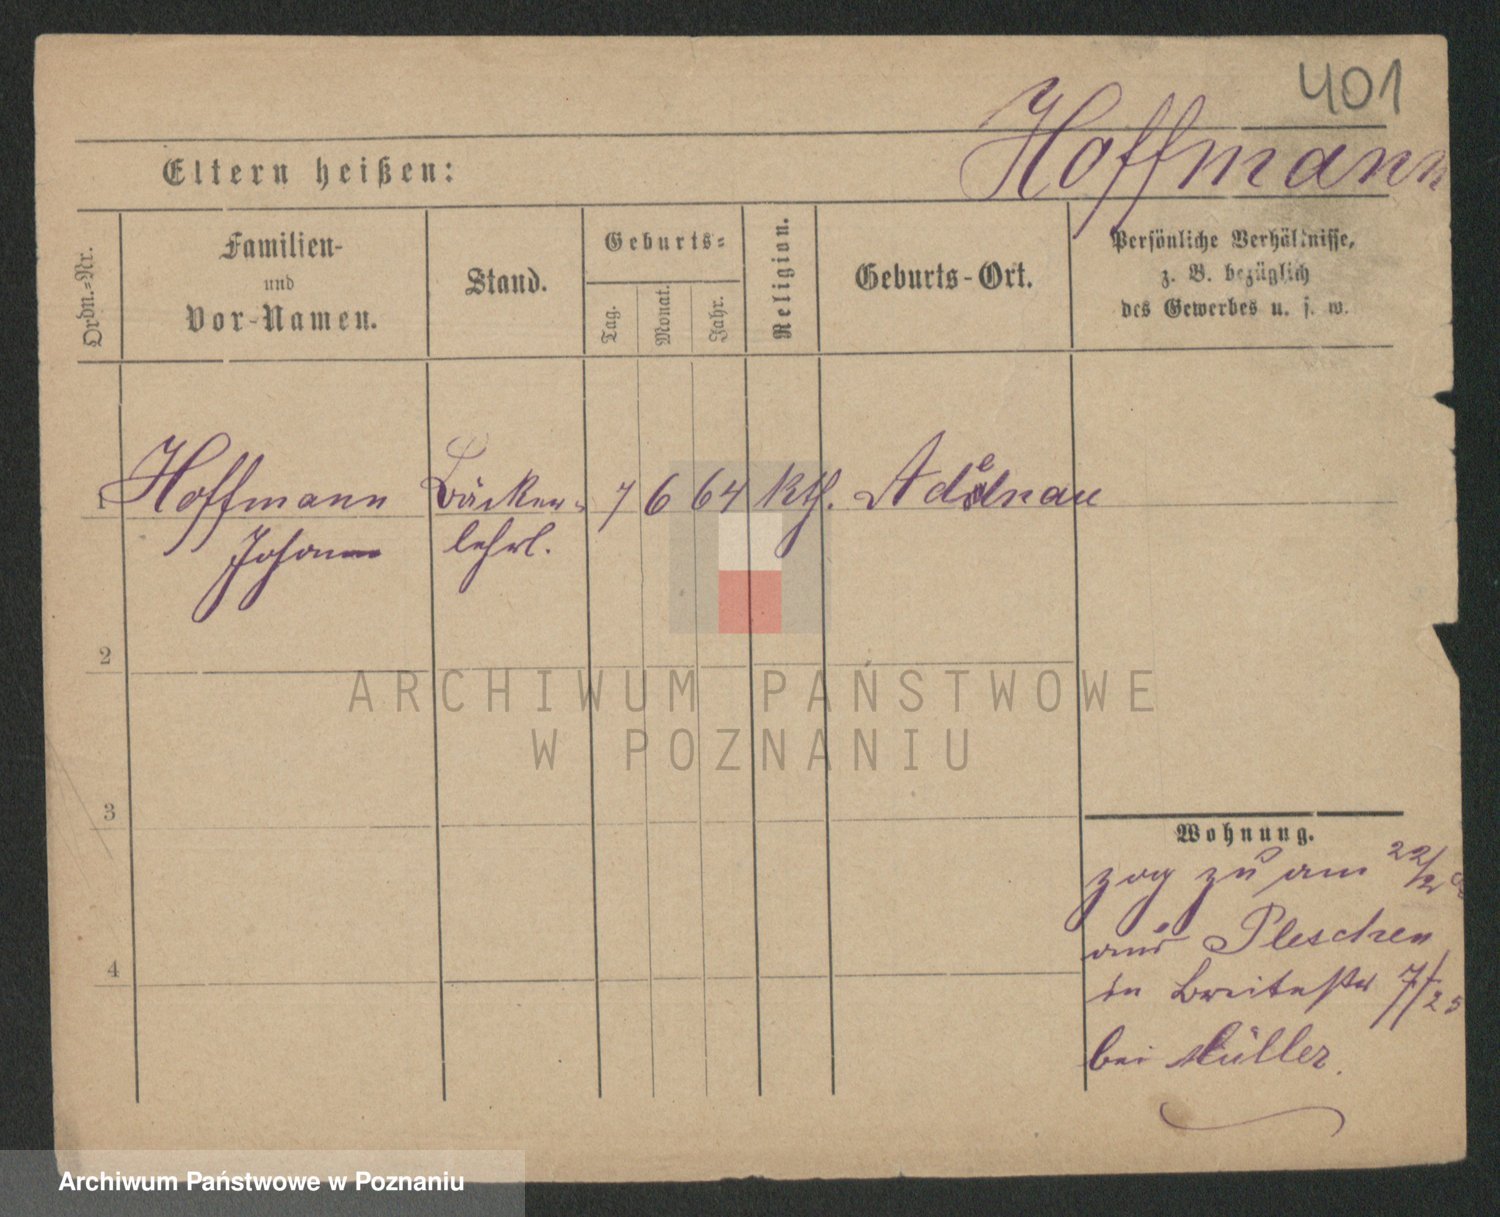 401
Hoffmann
Eltern heißen:
Ordn.-Nr.
Familien-
und
Vor-Namen.
Stand.
Geburts-
Tag.
Monat.
Jahr.
Religion.
Geburts-Ort.
Persönliche Verhältnisse,
z. B. bezüglich
des Gewerbes u. s. w.
1 Hoffmann Bäcker- 7 6 64 kth. Adelnau
Johann lehrl.
2
3
4
Wohnung.
zog zu am 22/2
aus Pleschen
in Breitestr 7/25
bei Müller.
ARCHIWUM PAŃSTWOWE
W POZNANIU
Archiwum Państwowe w Poznaniu